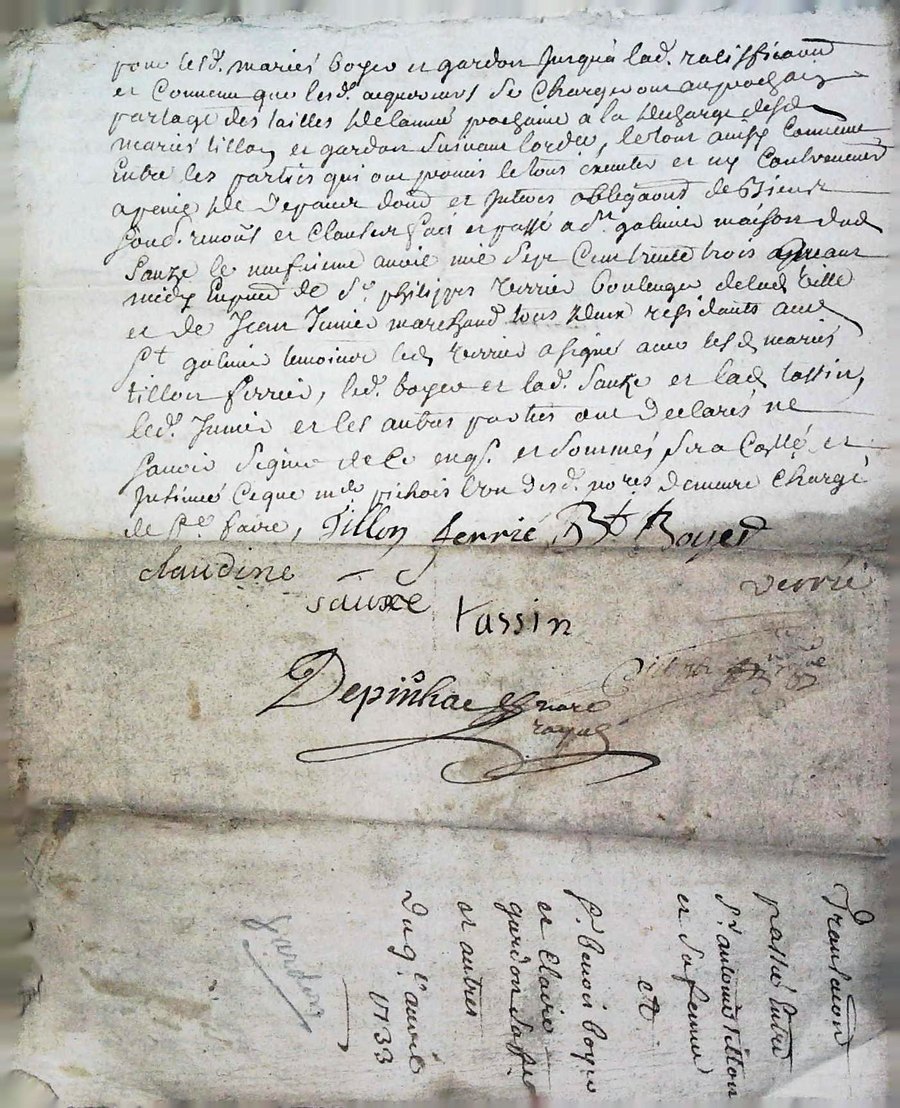 pour lesd. mariés boyer et gardon jusqua lad. ratiffication
et Convenu que lesd. acquereurs se Chargeront au prochain
partage des tailles de lannée prochaine a la decharge desd
mariés tillon et gardon suivant lordre, le tout ainsy Convenu
Entre les parties qui ont promis le tout executer et ny Contrevenir
a peine de
et Clauses fait et passé a St galmier maison dud
Sauze le neufvieme avril mil Sept Cent trente trois avant
midy En pnce de Sr philippe verrier boulenger de lad ville
et de Jean Jumier marchand tous deux residants aud
St galmier temoins led verrier a signé avec lesd mariés
tillon ferrier, led. boyer et lad. Sauze et lad tassin,
led. Jumier et les autres parties ont declarés ne
Savoir Signer de Ce enqs. et Sommés Sera Collé et
Intimé Ceque me pichois lun desd. nores demeure Chargé
de fe faire, Tillon ferrié Bt Boyer
claudine
sauze
tassin
verrié
Depinhac
nore
royal
Transaction
passée Entre
Sr antoine tillon
et sa femme
et
Sr benoit boyer
et Claire
gardon sa fe
et autres
Du 9e avril
1733
gardon